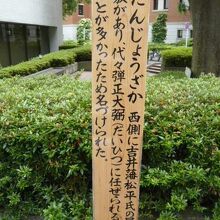 だんじょうざか 西側に吉井藩松平氏の
敷があり、代々弾正大弼(だいひつ)に任ぜられる
とが多かったため名づけられた。